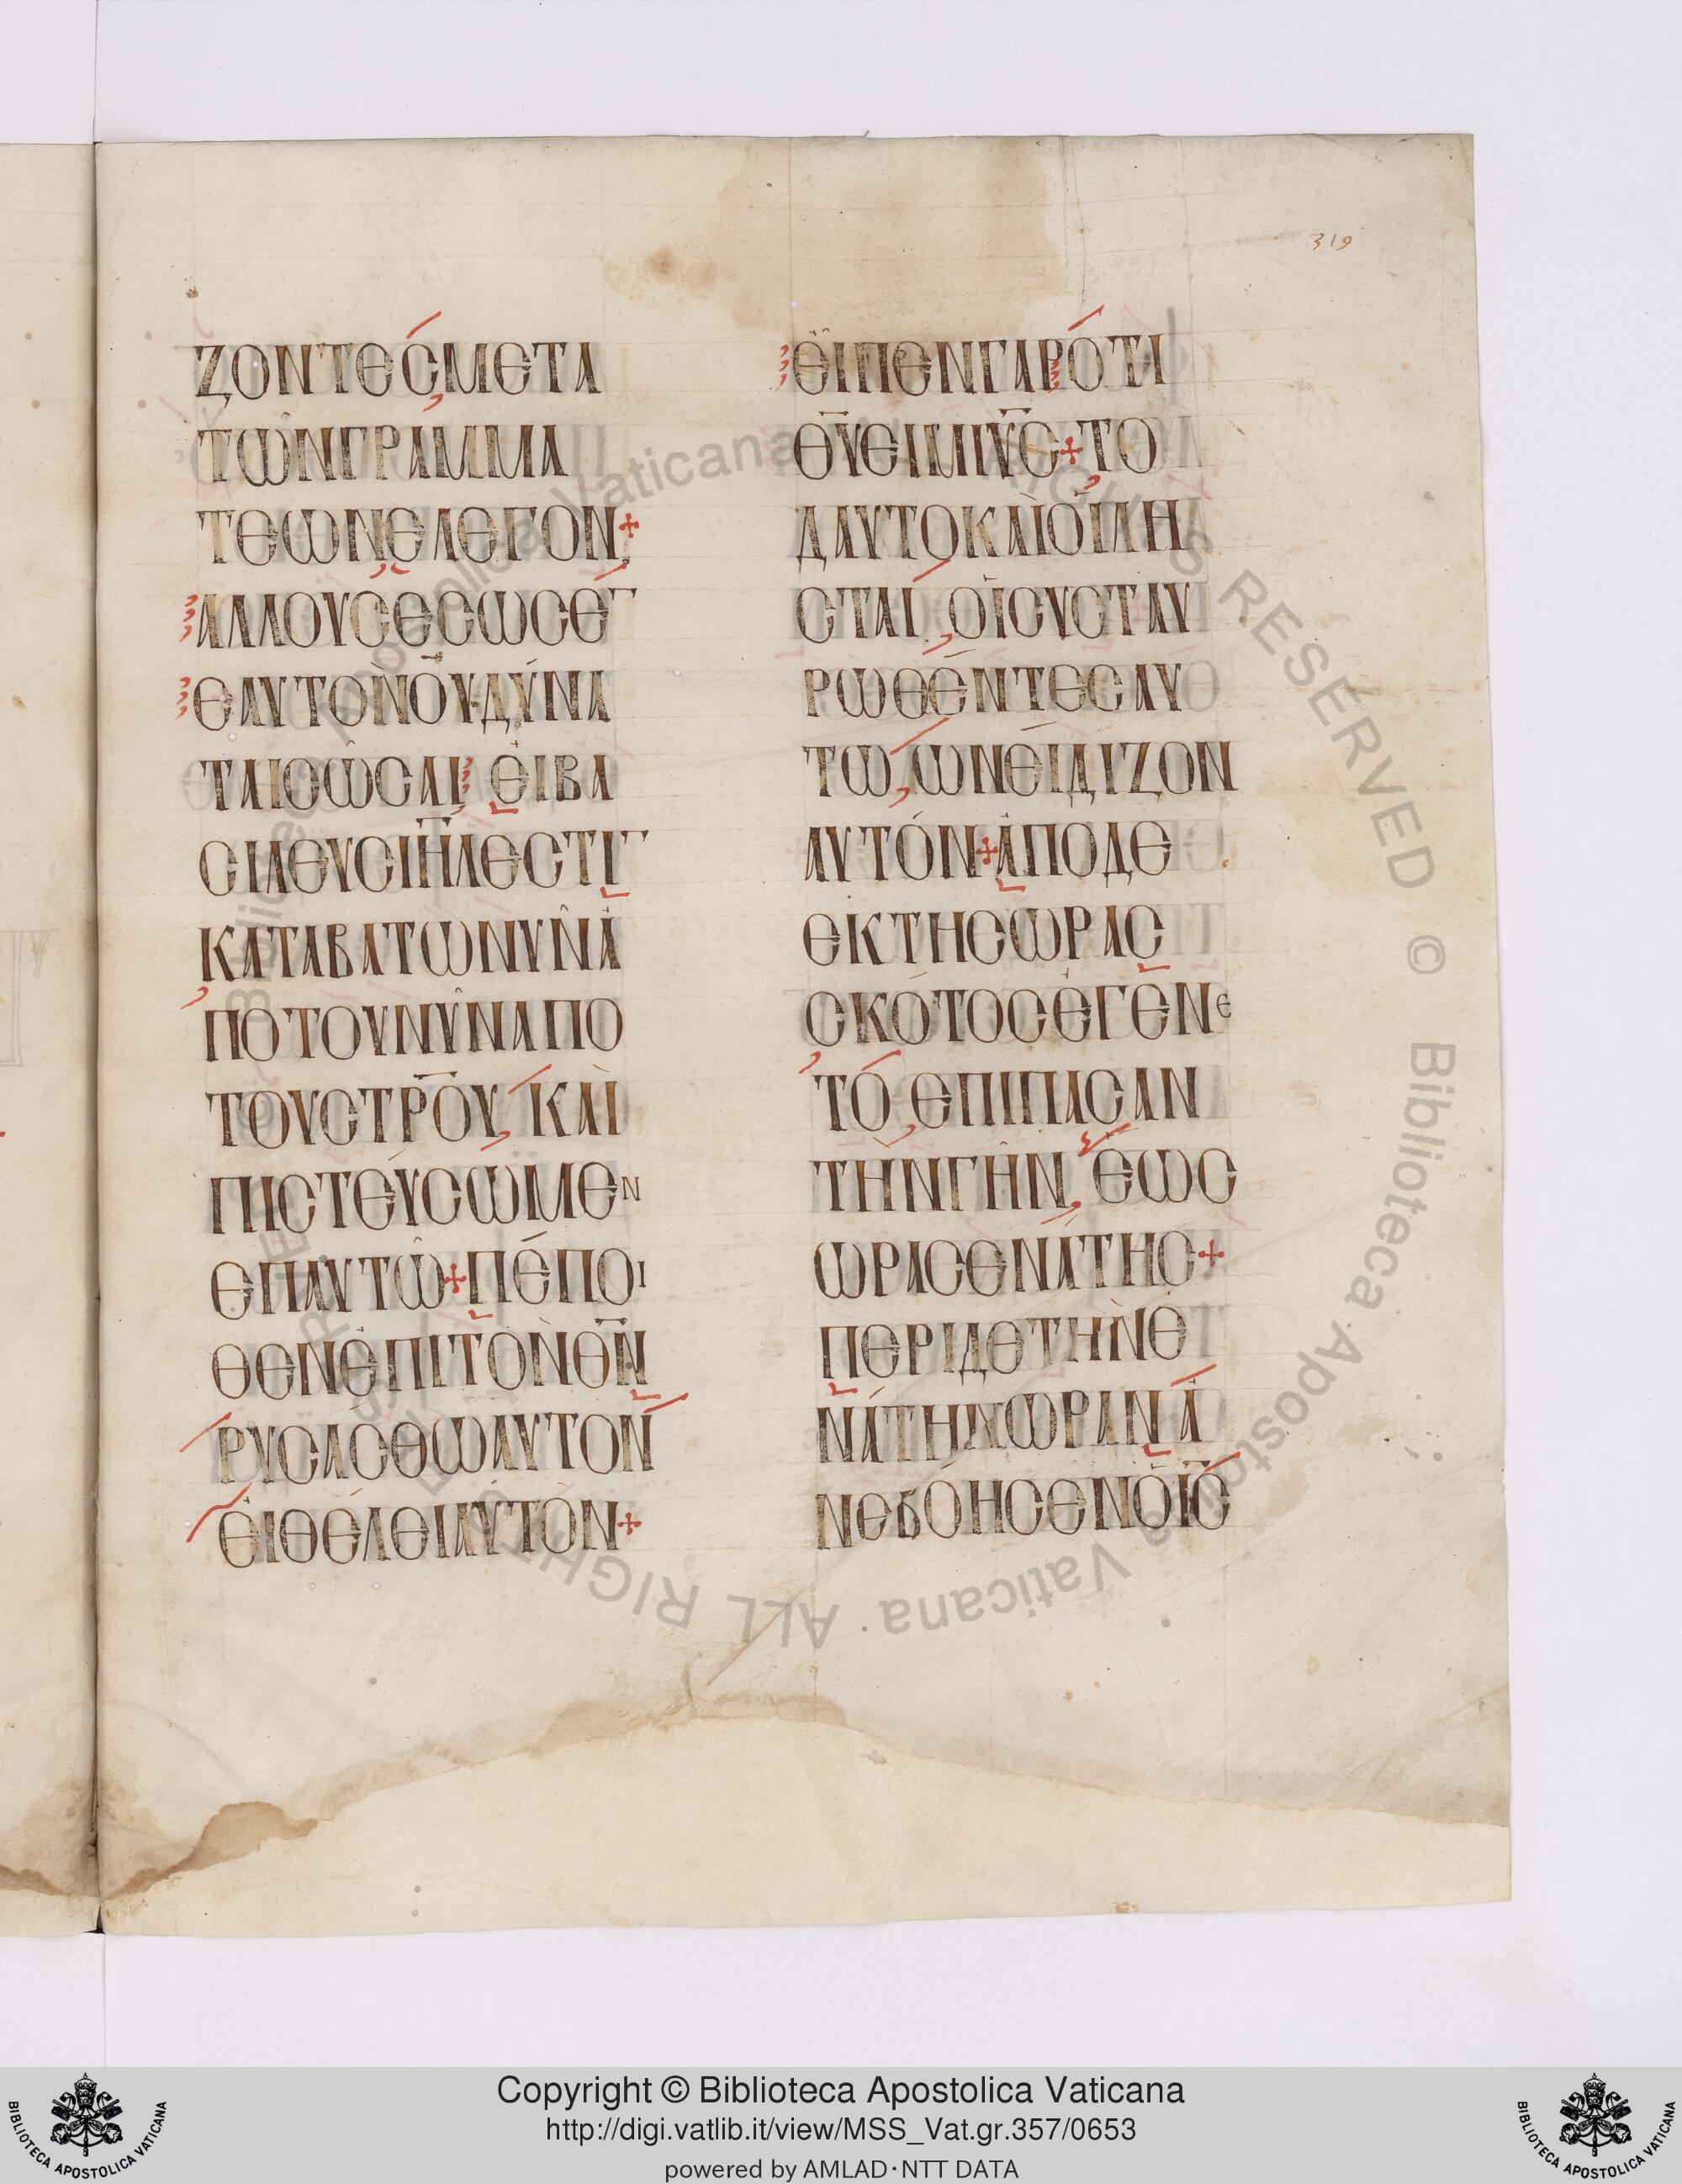 319
ΖΟΝΤΕС ΜΕΤΑ
ΤΩΝ ΓΡΑΜΜΑ
ΤΕΩΝ ΕΛΕΓΟΝ+
ΑΛΛΟΥС ΕСΩСΕ
ΕΑΥΤΟΝ ΟΥ ΔΥΝΑ
ΤΑΙ СΩСΑΙ ΕΙ ΒΑ
СΙΛΕΥС ΙΗΛ ΕСΤΙ
ΚΑΤΑΒΑΤΩ ΝΥΝ Α
ΠΟ ΤΟΥ ΝΥΝ ΑΠΟ
ΤΟΥ СΤΡΟΥ ΚΑΙ
ΠΙСΤΕΥСΩΜΕΝ
ΕΠ ΑΥΤΩ+ΠΕΠΟΙ
ΘΕΝ ΕΠΙ ΤΟΝ ΘΝ
ΡΥСΑСΘΩ ΑΥΤΟΝ
ΕΙ ΘΕΛΕΙ ΑΥΤΟΝ+
ΕΙΠΕΝ ΓΑΡ ΟΤΙ
ΘΥ ΕΙΜΙ ΥС+ΤΟ
Δ ΑΥΤΟ ΚΑΙ ΟΙ ΛΗ
СΤΑΙ ΟΙ СΥСΤΑΥ
ΡΩΘΕΝΤΕС ΑΥ
ΤΩ ΩΝΕΙΔΙΖΟΝ
ΑΥΤΟΝ+ΑΠΟ ΔΕ
ΕΚΤΗС ΩΡΑС
СΚΟΤΟС ΕΓΕΝΕ
ΤΟ ΕΠΙ ΠΑСΑΝ
ΤΗΝ ΓΗΝ ΕΩС
ΩΡΑС ΕΝΑΤΗС+
ΠΕΡΙ ΔΕ ΤΗΝ Ε
ΝΑΤΗΝ ΩΡΑΝ Α
ΝΕΒΟΗСΕΝ Ο ΙС
Biblioteca Apostolica Vaticana. ALL RIGHTS RESERVED © Biblioteca Apostolica Vaticana. ALL RIGHTS RESERVED
Copyright © Biblioteca Apostolica Vaticana
http://digi.vatlib.it/view/MSS_Vat.gr.357/0653
powered by AMLAD·NTT DATA
BIBLIOTECA APOSTOLICA VATICANA
BIBLIOTECA APOSTOLICA VATICANA